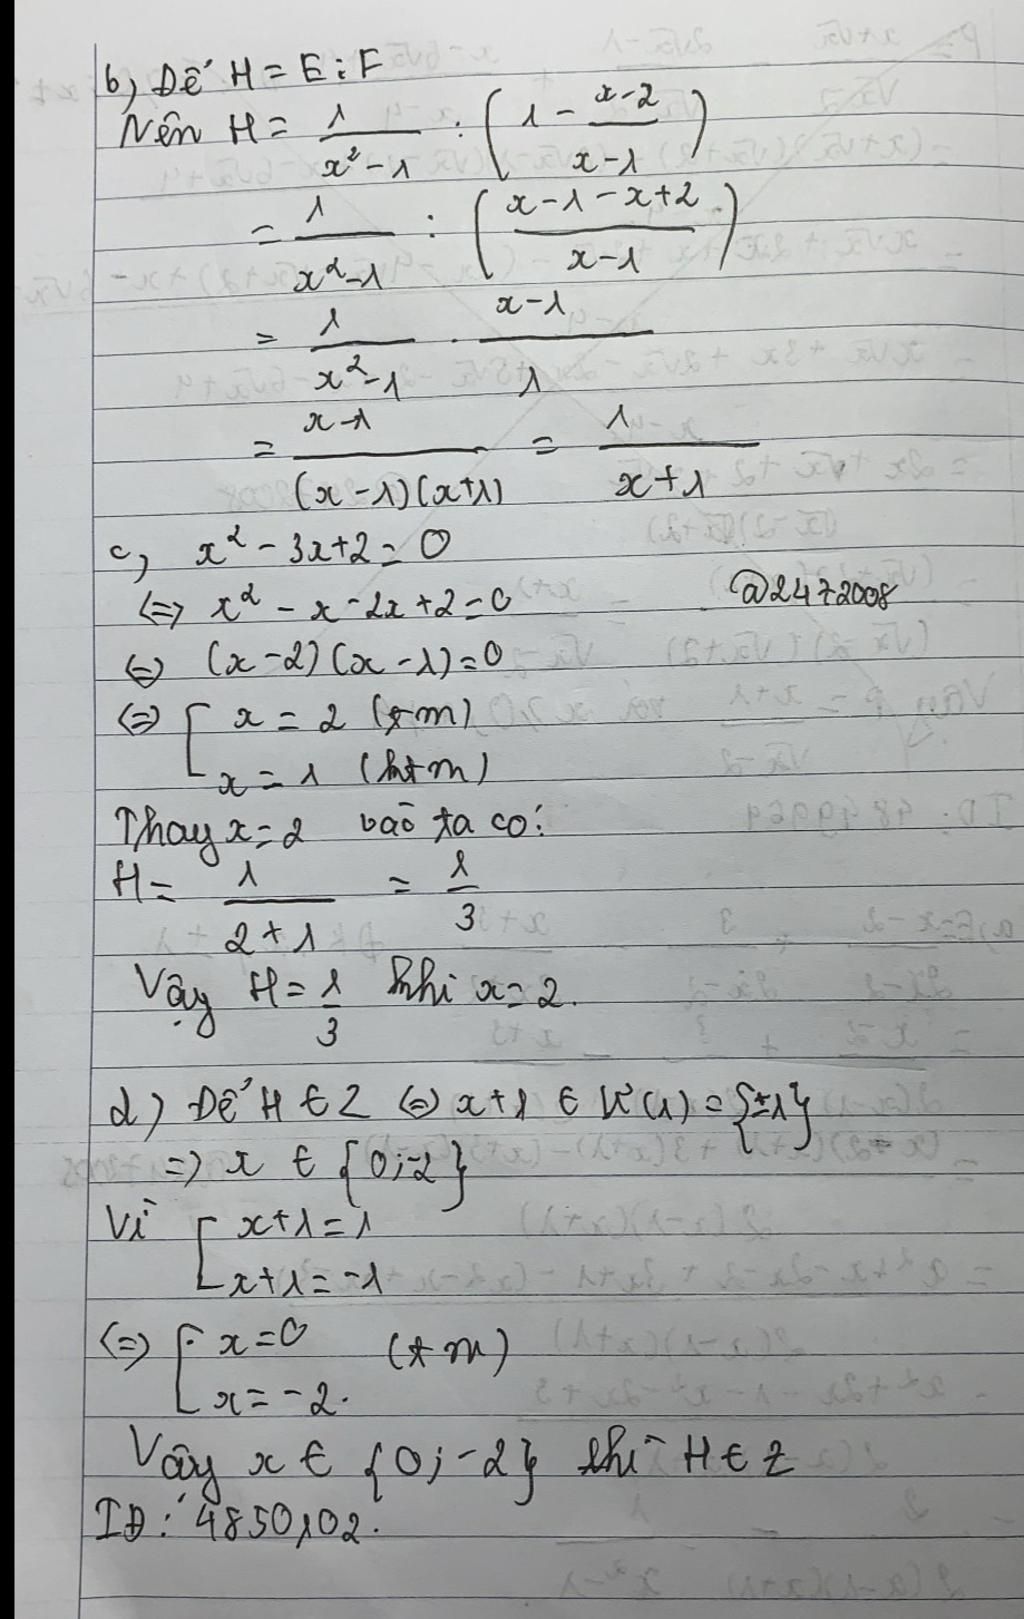 b, Để H = E : F
Nên H = 1/(x² - 1) : (1 - (x-2)/(x-1))
= 1/(x² - 1) : ((x-1-x+2)/(x-1))
= 1/(x² - 1) . (x-1)/1
= (x-1)/((x-1)(x+1)) = 1/(x+1)
c, x² - 3x + 2 = 0
<=> x² - x - 2x + 2 = 0
@2472008
<=> (x-2)(x-1) = 0
<=> [ x = 2 (tm)
x = 1 (ktm)
Thay x = 2 vào ta có:
H = 1/(2+1) = 1/3
Vậy H = 1/3 khi x = 2.
d) Để H ∈ Z <=> x+1 ∈ Ư(1) = {±1}
=> x ∈ {0;-2}
Vì [ x+1 = 1
x+1 = -1
<=> [ x = 0 (tm)
x = -2.
Vậy x ∈ {0;-2} thì H ∈ Z
ID: 4850102.